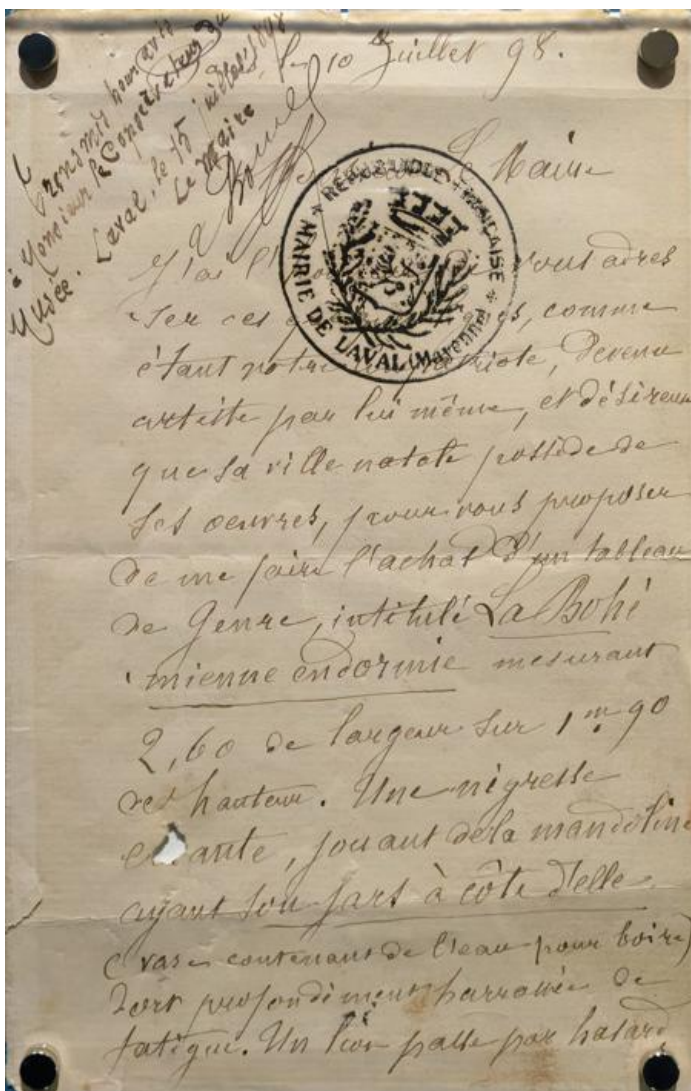 Transmis pour avis
à Monsieur le Conservateur du
Musée. Laval, le 15 juillet 1898
Le Maire
le 10 Juillet 98.
Le Maire
RÉPUBLIQUE FRANÇAISE
MAIRIE DE LAVAL (Mayenne)
J'ai vous adres
ser ces comme
étant votre devenu
artiste par lui même, et désireux
que sa ville natale possède de
ses œuvres, pour vous proposer
de me faire l'achat d'un tableau
de Genre, intitulé La Bohé
mienne endormie mesurant
2,60 de largeur sur 1m90
de hauteur. Une négresse
jouant de la mandoline
ayant son jars à côté d'elle
(vase contenant de l'eau pour boire)
Dort profondément harrasée de
fatigue. Un lion passe par hasard